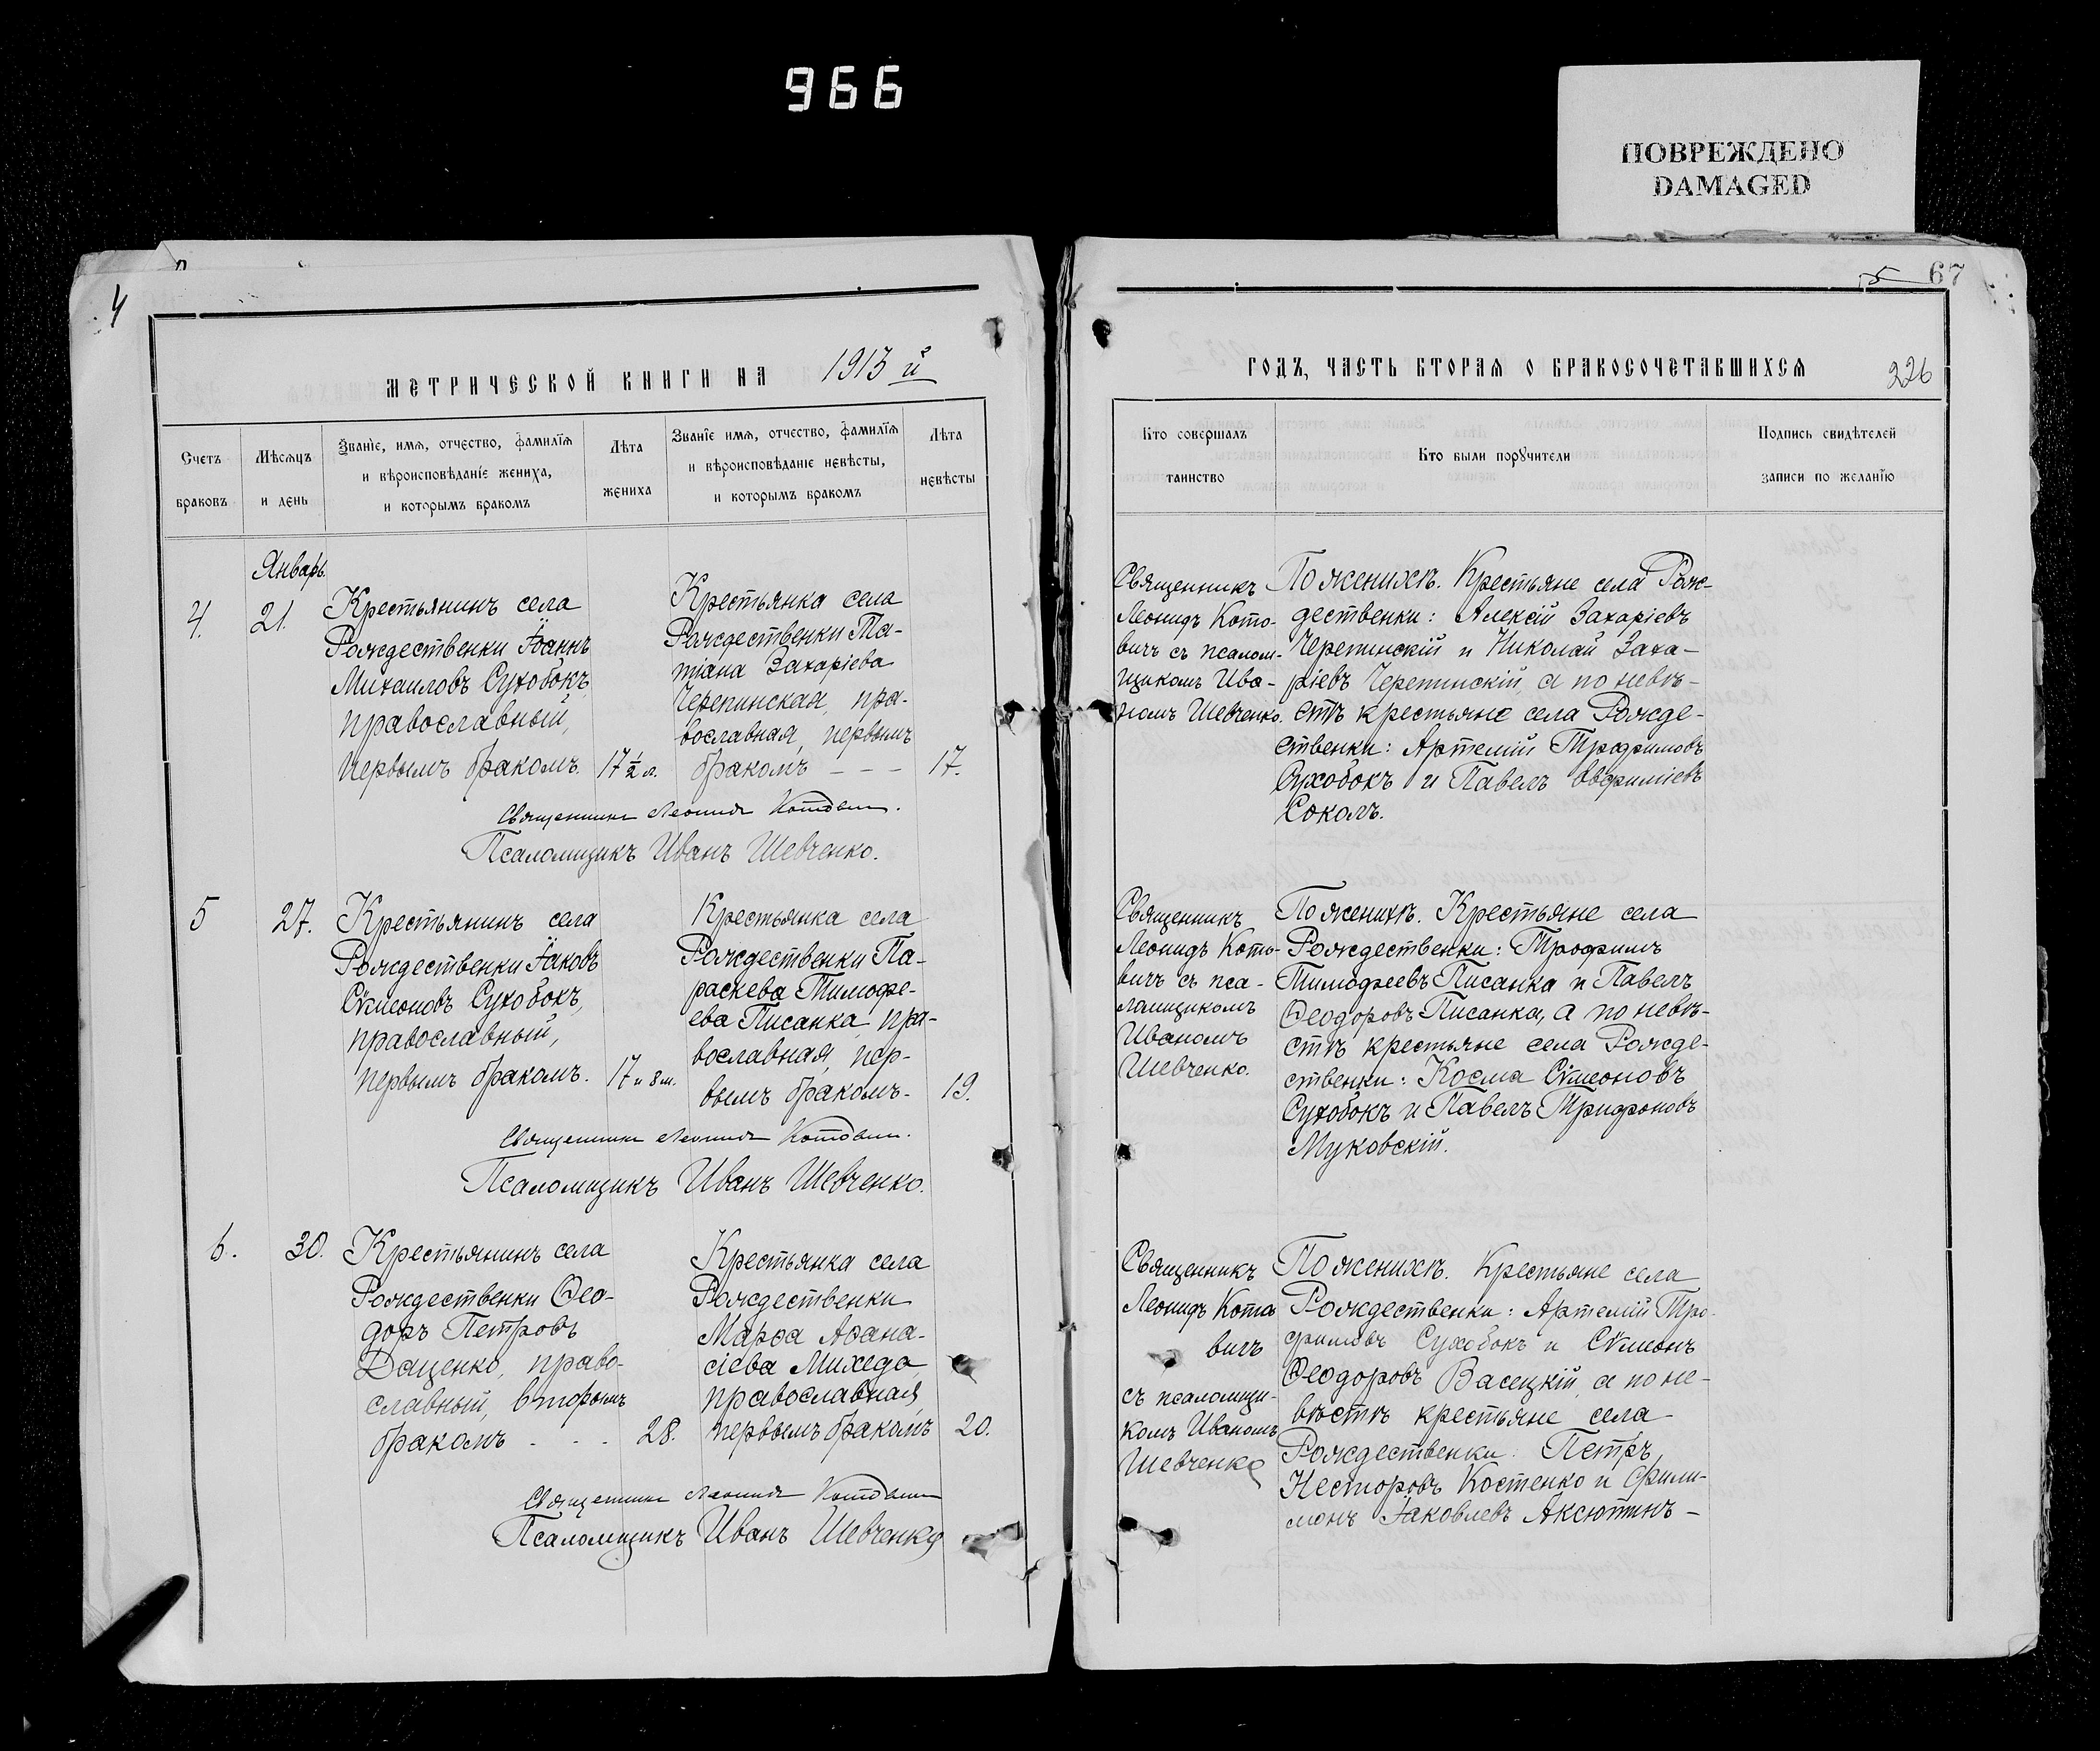 966
ПОВРЕЖДЕНО
DAMAGED
4
МЕТРИЧЕСКОЙ КНИГИ НА 1913 й
Счетъ браковъ
Мѣсяцъ и день
Званіе, имя, отчество, фамилія и вѣроисповѣданіе жениха, и которымъ бракомъ
Лѣта жениха
Званіе имя, отчество, фамилія и вѣроисповѣданіе невѣсты, и которымъ бракомъ
Лѣта невѣсты
Январь.
4. 21.
Крестьянинъ села
Рождественки Іоаннъ
Михаиловъ Сухобокъ,
православный,
первымъ бракомъ. 17 ½ л.
Крестьянка села
Рождественки Та-
тіана Захаріева
Черепинская, пра-
вославная, первымъ
бракомъ - - - 17.
Священникъ Леонидъ Котовичъ.
Псаломщикъ Иванъ Шевченко.
5 27.
Крестьянинъ села
Рождественки Іаковъ
Сѵмеоновъ Сухобокъ,
православный,
первымъ бракомъ. 17 и 8 м.
Крестьянка села
Рождественки Па-
раскева Тимофе-
ева Писанка, пра-
вославная, пер-
вымъ бракомъ- 19.
Священникъ Леонидъ Котовичъ.
Псаломщикъ Иванъ Шевченко.
6. 30.
Крестьянинъ села
Рождественки Ѳео-
доръ Петровъ
Даценко, право-
славный, вторымъ
бракомъ - - - 28.
Крестьянка села
Рождественки
Марѳа Аѳана-
сіева Михедо,
православная,
первымъ бракомъ 20.
Священникъ Леонидъ Котовичъ
Псаломщикъ Иванъ Шевченко
67
ГОДЪ, ЧАСТЬ ВТОРАЯ О БРАКОСОЧЕТАВШИХСЯ
226
Кто совершалъ таинство
Кто были поручители
Подпись свидѣтелей записи по желанію
Священникъ
Леонидъ Кото-
вичъ съ псалом-
щикомъ Ива-
номъ Шевченко.
По женихѣ. Крестьяне села Рож-
дественки: Алексій Захаріевъ
Черепинскій и Николай Заха-
ріевъ Черепинскій, а по невѣ-
стѣ крестьяне села Рожде-
ственки: Артемій Трофимовъ
Сухобокъ и Павелъ Евфиміевъ
Соколъ.
Священникъ
Леонидъ Кото-
вичъ съ пса-
ломщикомъ
Иваномъ
Шевченко.
По женихѣ. Крестьяне села
Рождественки: Трофимъ
Тимофеевъ Писанка и Павелъ
Ѳеодоровъ Писанка, а по невѣ-
стѣ крестьяне села Рожде-
ственки: Косма Сѵмеоновъ
Сухобокъ и Павелъ Трифоновъ
Муковскій.
Священникъ
Леонидъ Кото
вичъ
съ псаломщи-
комъ Иваномъ
Шевченко
По женихѣ. Крестьяне села
Рождественки: Артемій Тро-
фимовъ Сухобокъ и Сѵмеонъ
Ѳеодоровъ Васецкій, а по не-
вѣстѣ крестьяне села
Рождественки: Петръ
Несторовъ Костенко и Фили-
монъ Іаковлевъ Аксютинъ -